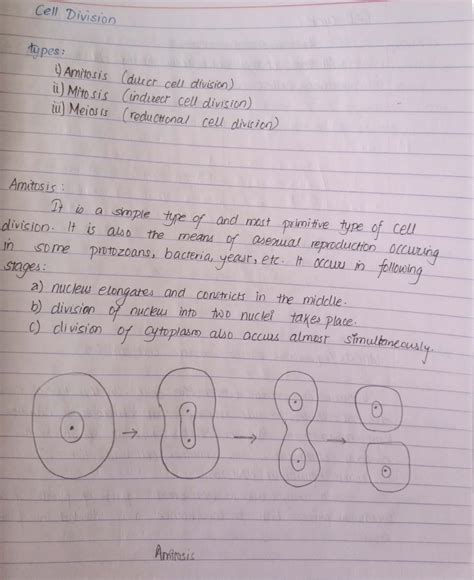 Cell Division
types:
i) Amitosis (direct cell division)
ii) Mitosis (indirect cell division)
iii) Meiosis (reductional cell division)
Amitosis:
It is a simple type of and most primitive type of cell
division. It is also the means of asexual reproduction occuring
in some protozoans, bacteria, yeast, etc. It occurs in following
stages:
a) nucleus elongates and constricts in the middle.
b) division of nucleus into two nuclei takes place.
c) division of cytoplasm also occurs almost simultaneously.
Amitosis